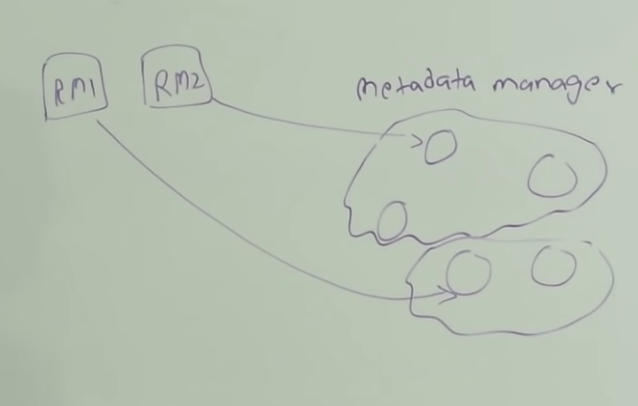 RM1 RM2
metadata manager